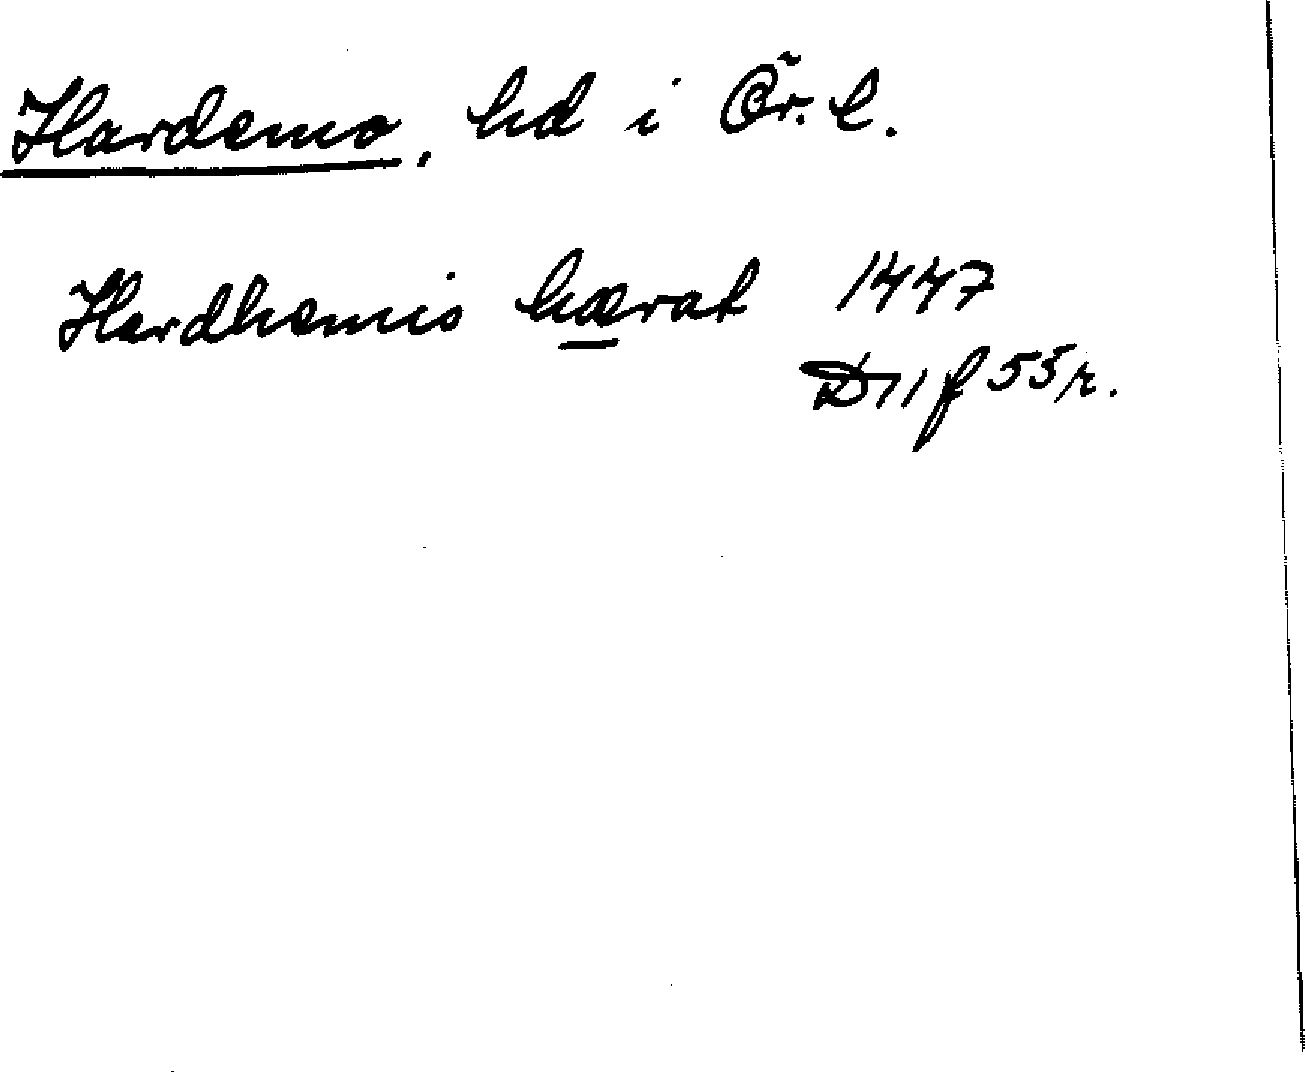 Hardemo, hd i Ör. l.
Hardhemis hærat 1447
D 11 f 55 r.